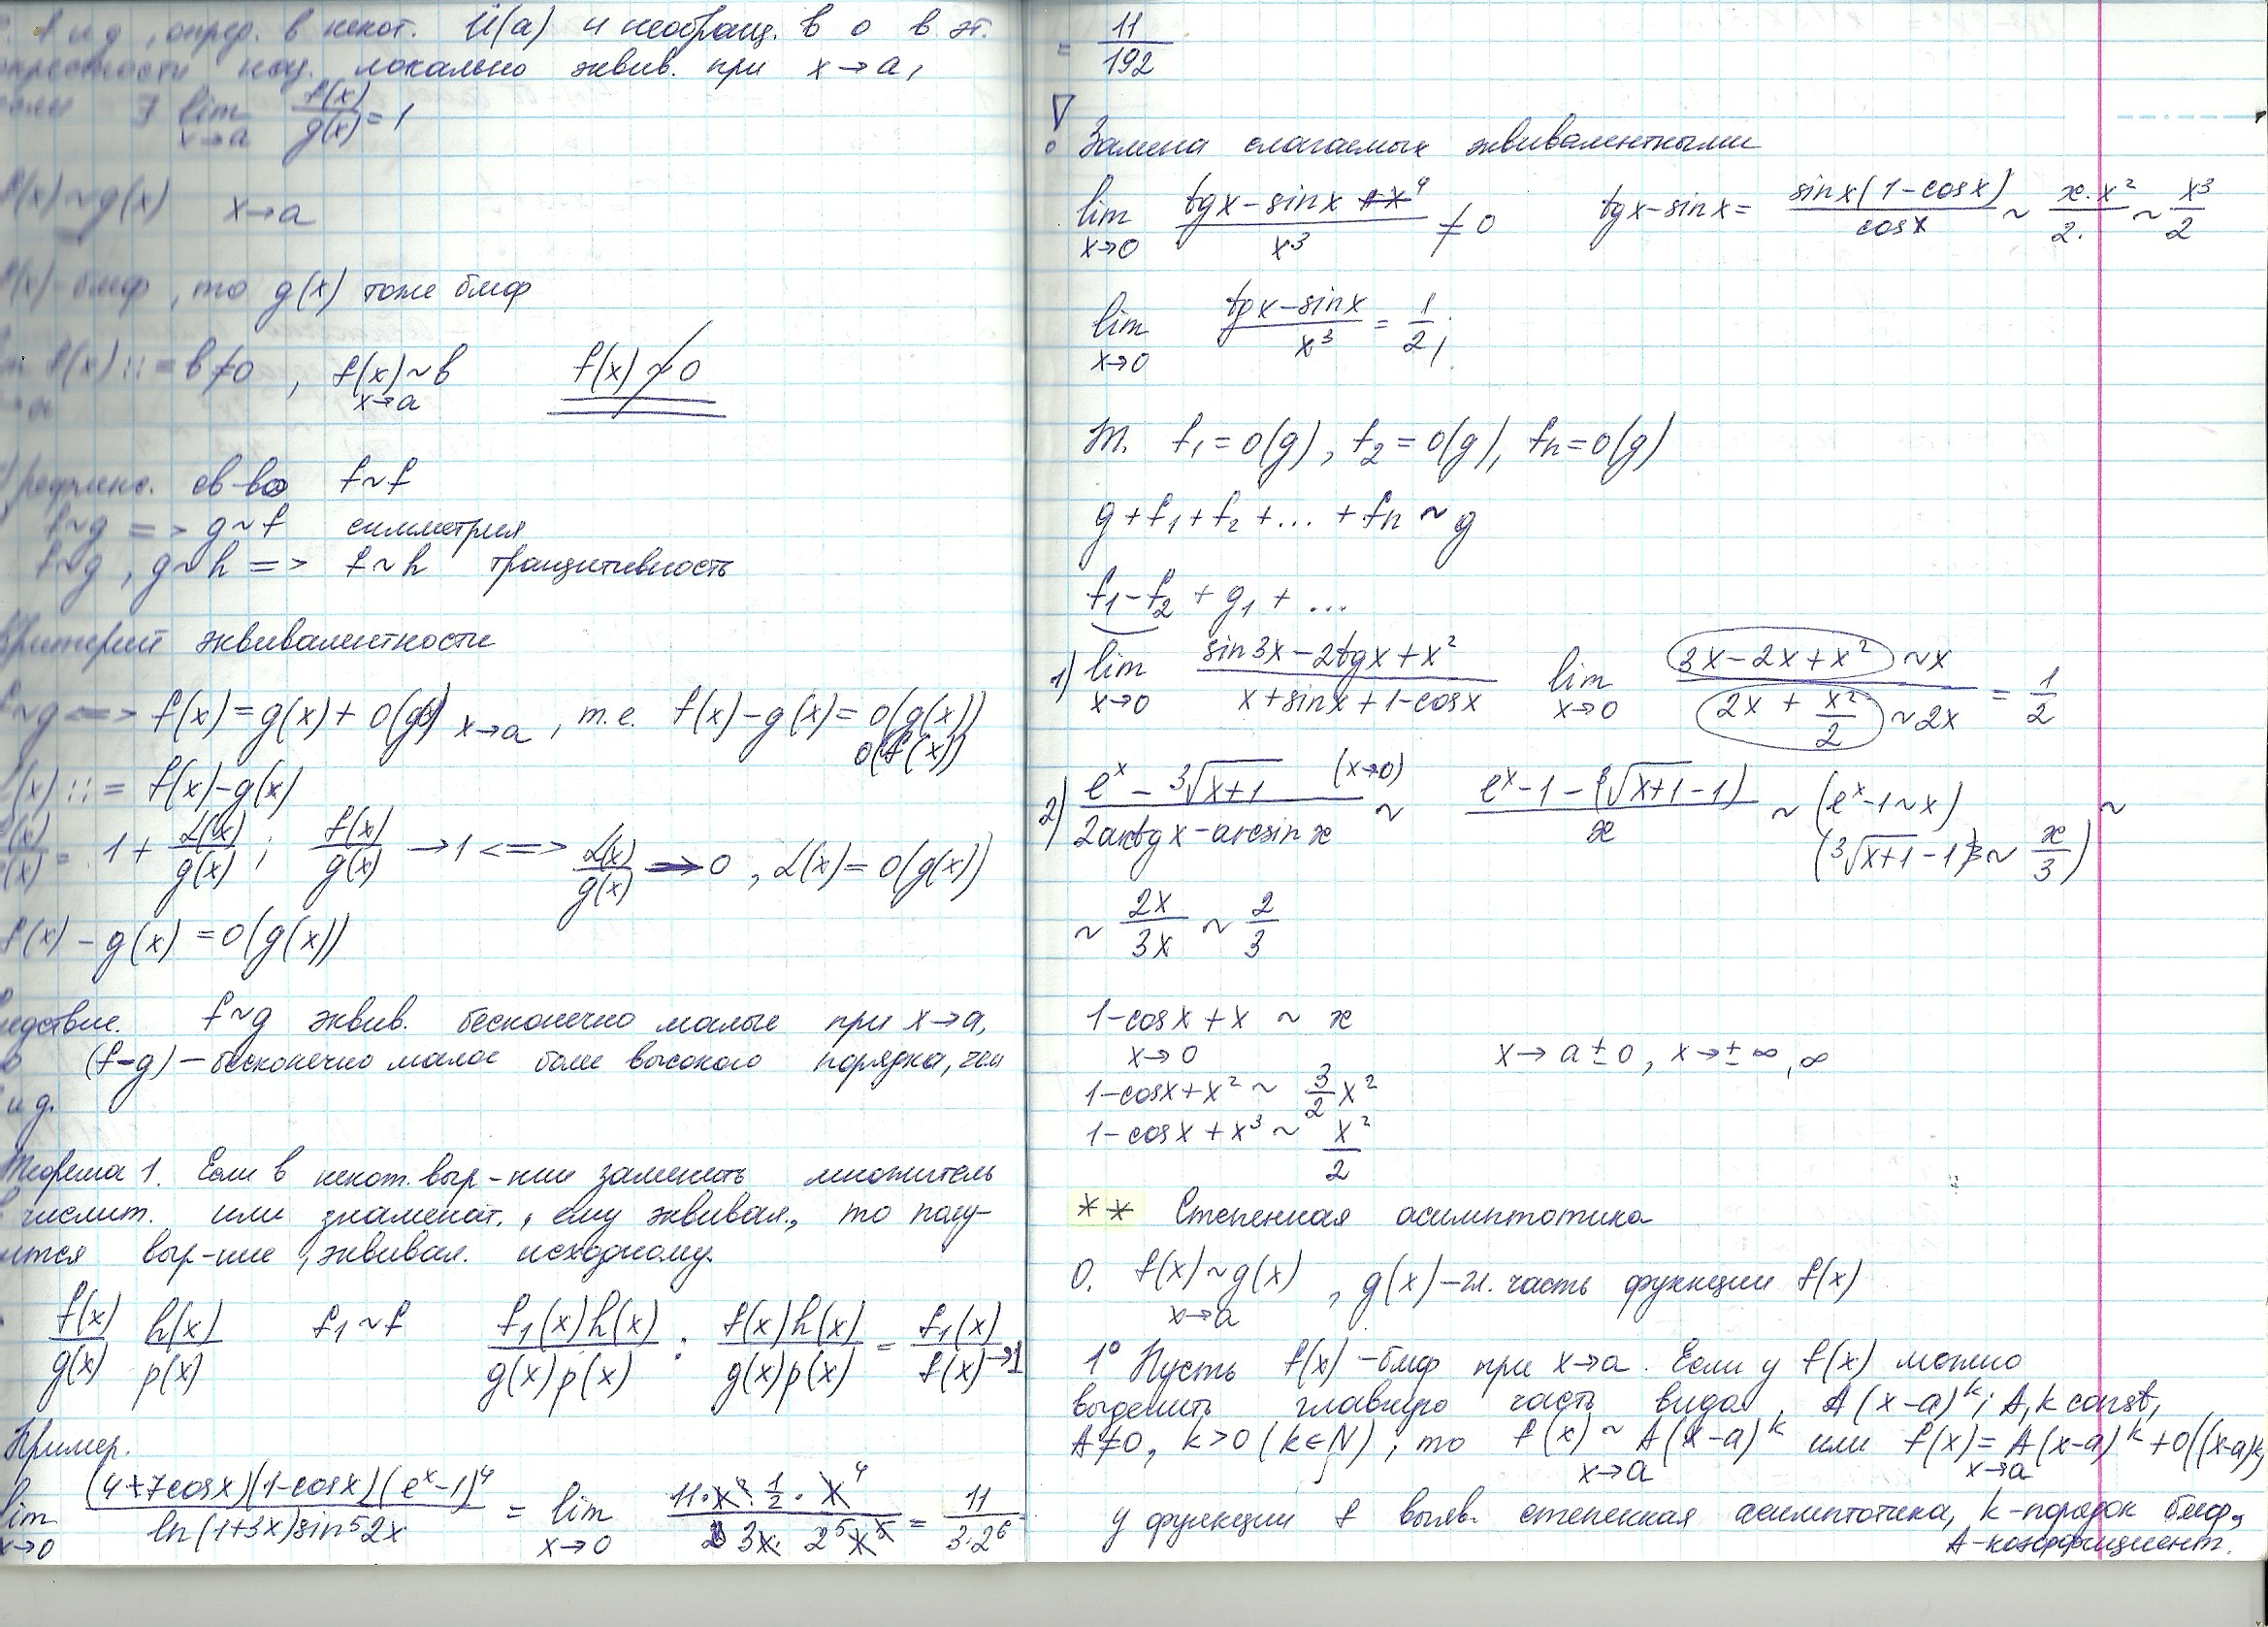 f и g, опред. в некот. Ů(a) и необращ. в 0 в эт.
окрестности наз. локально эквив. при x→a,
если ∃ lim x→a f(x)/g(x) = 1
f(x)~g(x) x→a
f(x)-бмф, то g(x) тоже бмф
f(x) ::= b≠0, f(x)~b x→a f(x)≁0
рефлекс. св-во f~f
f~g => g~f симметрия
f~g, g~h => f~h транзитивность
Критерий эквивалентности
f~g <=> f(x)=g(x)+o(g) x→a, т.е. f(x)-g(x)=o(g(x))
o(f(x))
(x) ::= f(x)-g(x)
f(x)/g(x) = 1 + α(x)/g(x); f(x)/g(x) →1 <=> α(x)/g(x) →0, α(x)=o(g(x))
f(x)-g(x)=o(g(x))
едствие. f~g эквив. бесконечно малые при x→a,
(f-g) – бесконечно малое боле высокого порядка, чем
и g.
Теорема 1. Если в некот. выр-нии заменить множитель
в числит. или знаменат., ему эквивал., то полу-
ится выр-ние, эквивал. исходному.
f(x)/g(x) h(x)/p(x) f₁~f f₁(x)h(x)/g(x)p(x) : f(x)h(x)/g(x)p(x) = f₁(x)/f(x) →1
Пример.
lim x→0 (4+7cosx)(1-cosx)(eˣ-1)⁴/ln(1+3x)sin⁵2x = lim x→0 11·x²·1/2·x⁴/3x·2⁵x⁵ = 11/3·2⁶
= 11/192
! Замена слагаемых эквивалентными
lim x→0 tgx-sinx+x⁴/x³ ≠0 tgx-sinx = sinx(1-cosx)/cosx ~ x·x²/2· ~ x³/2
lim x→0 tgx-sinx/x³ = 1/2;
Т. f₁=o(g), f₂=o(g), fn=o(g)
g+f₁+f₂+...+fn~g
f₁-f₂+g₁+...
1) lim x→0 sin3x-2tgx+x²/x+sinx+1-cosx lim x→0 (3x-2x+x²)~x/(2x+x²/2)~2x = 1/2
2) eˣ-³√x+1 (x→0)/2arctgx-arcsinx ~ eˣ-1-(³√x+1-1)/x ~ (eˣ-1~x) (³√x+1-1~x/3) ~
~ 2x/3x ~ 2/3
1-cosx+x ~ x
x→0 x→a±0, x→±∞, ∞
1-cosx+x² ~ 3/2 x²
1-cosx+x³ ~ x²/2
** Степенная асимптотика
0. f(x)~g(x) x→a, g(x)–гл. часть функции f(x)
1° Пусть f(x)-бмф при x→a. Если у f(x) можно
выделить главную часть вида, A(x-a)ᵏ; A,k const,
A≠0, k>0 (k∈N), то f(x)~A(x-a)ᵏ x→a или f(x)=A(x-a)ᵏ+o((x-a)ᵏ) x→a
у функции f выяв. степенная асимптотика, k-порядок бмф,
A-коэффициент.